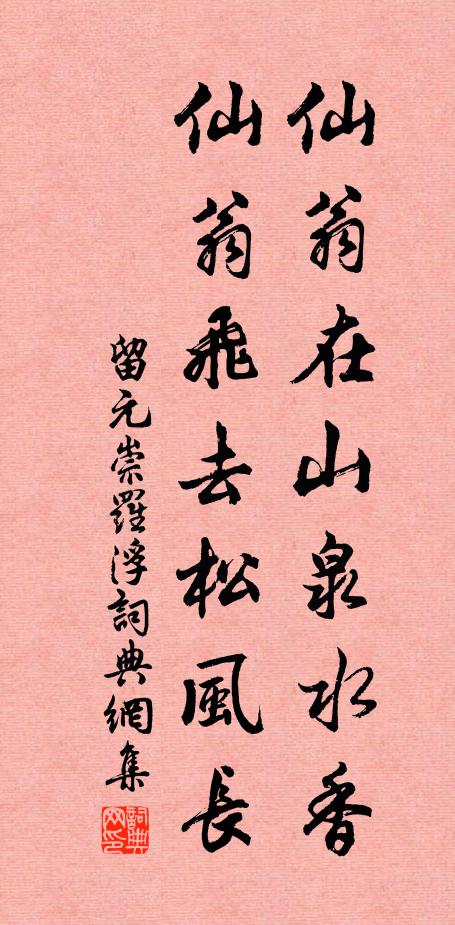 仙翁在山泉水香
仙翁飛去松風長
留元崇羅浮詞典網集
詞典网印